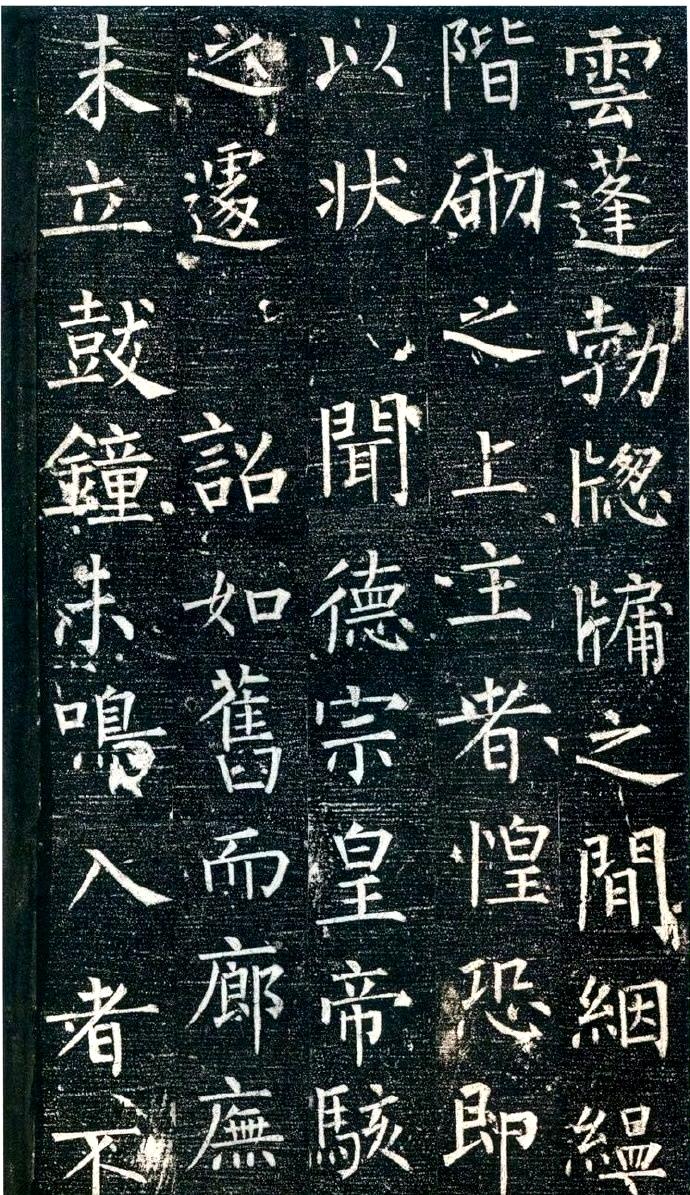 雲蓬勃牕牗之間絪緼
階砌之上主者惶恐即
以状聞德宗皇帝駭
之遽詔如舊而廊廡
未立鼓鐘未鳴入者不